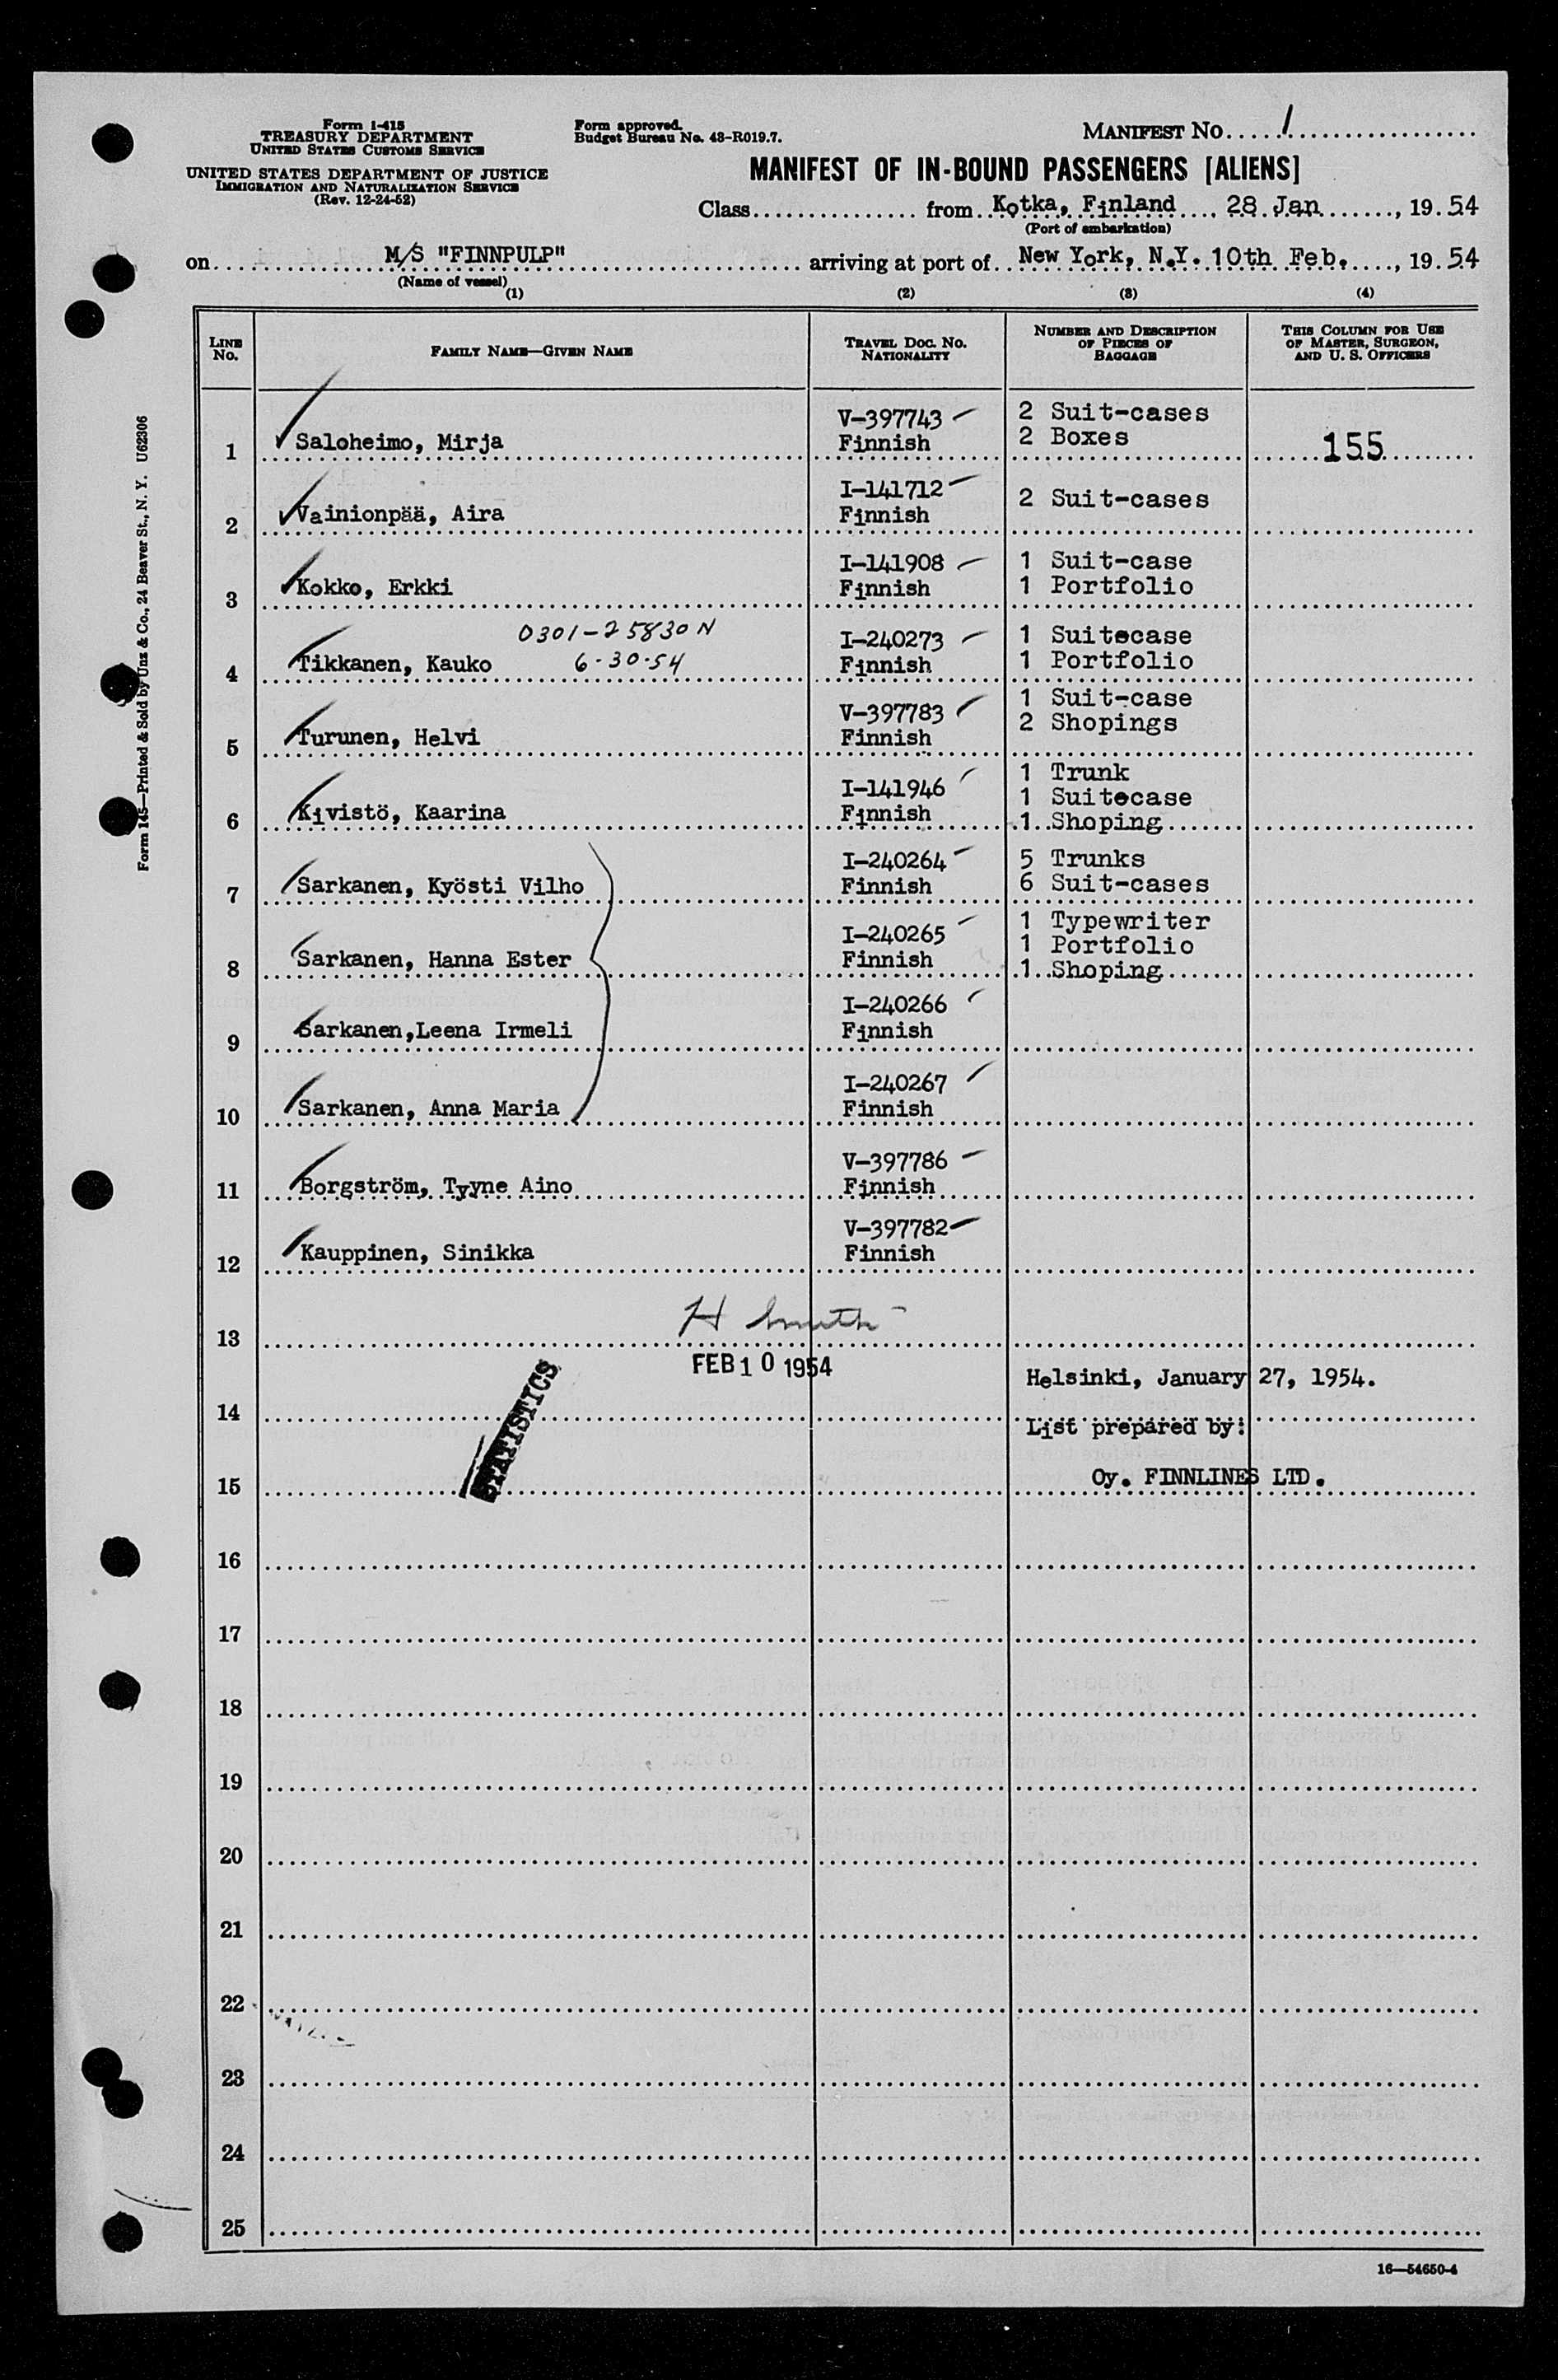 Form I-415
TREASURY DEPARTMENT
UNITED STATES CUSTOMS SERVICE
UNITED STATES DEPARTMENT OF JUSTICE
IMMIGRATION AND NATURALIZATION SERVICE
(Rev. 12-24-52)
Form approved.
Budget Bureau No. 43-R019.7.
MANIFEST NO. 1
MANIFEST OF IN-BOUND PASSENGERS [ALIENS]
Class from Kotka, Finland, 28 Jan, 1954
(Port of embarkation)
on M/S "FINNPULP" arriving at port of New York, N.Y. 10th Feb., 1954
(Name of vessel)
(1) (2) (3) (4)
LINE NO. FAMILY NAME—GIVEN NAME TRAVEL DOC. NO. NATIONALITY NUMBER AND DESCRIPTION OF PIECES OF BAGGAGE THIS COLUMN FOR USE OF MASTER, SURGEON, AND U. S. OFFICERS
V-397743 2 Suit-cases
1 Saloheimo, Mirja Finnish 2 Boxes 155
I-141712 2 Suit-cases
2 Vainionpää, Aira Finnish
I-141908 1 Suit-case
3 Kokko, Erkki Finnish 1 Portfolio
0301-25830 N I-240273 1 Suitecase
4 Tikkanen, Kauko 6-30-54 Finnish 1 Portfolio
V-397783 1 Suit-case
5 Turunen, Helvi Finnish 2 Shopings
1 Trunk
I-141946 1 Suitecase
6 Kivistö, Kaarina Finnish 1 Shoping
I-240264 5 Trunks
7 Sarkanen, Kyösti Vilho Finnish 6 Suit-cases
1 Typewriter
I-240265 1 Portfolio
8 Sarkanen, Hanna Ester Finnish 1 Shoping
I-240266
9 Sarkanen,Leena Irmeli Finnish
I-240267
10 Sarkanen, Anna Maria Finnish
V-397786
11 Borgström, Tyyne Aino Finnish
V-397782
12 Kauppinen, Sinikka Finnish
H Smith
13
FEB 10 1954
Helsinki, January 27, 1954.
STATISTICS
14
List prepared by:
15 Oy. FINNLINES LTD.
16
17
18
19
20
21
22
23
24
25
16—54650-4
Form 145—Printed & Sold by Unz & Co., 24 Beaver St., N. Y. U62306